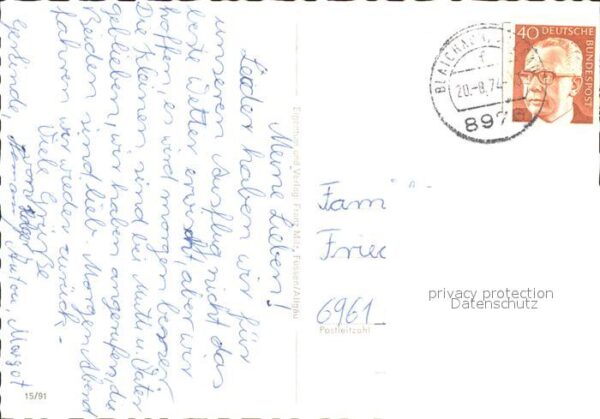 Meine Lieben!
Leider haben wir für
unseren Ausflug nicht das
beste Wetter erwischt, aber wir
hoffen, es wird morgen besser.
Die Kleinen sind bei Mutti u. Vater
geblieben, wir haben angerufen, die
Beiden sind lieb. Morgen Abend
fahren wir wieder zurück.
Viele Grüße
Gerlinde
Anton, Margot
15/91
Eigentum und Verlag: Franz Milz, Füssen/Allgäu
BLAICHACH
20.-8.74
897
40 DEUTSCHE
BUNDESPOST
Fam
Fried
6961
Postleitzahl
privacy protection
Datenschutz